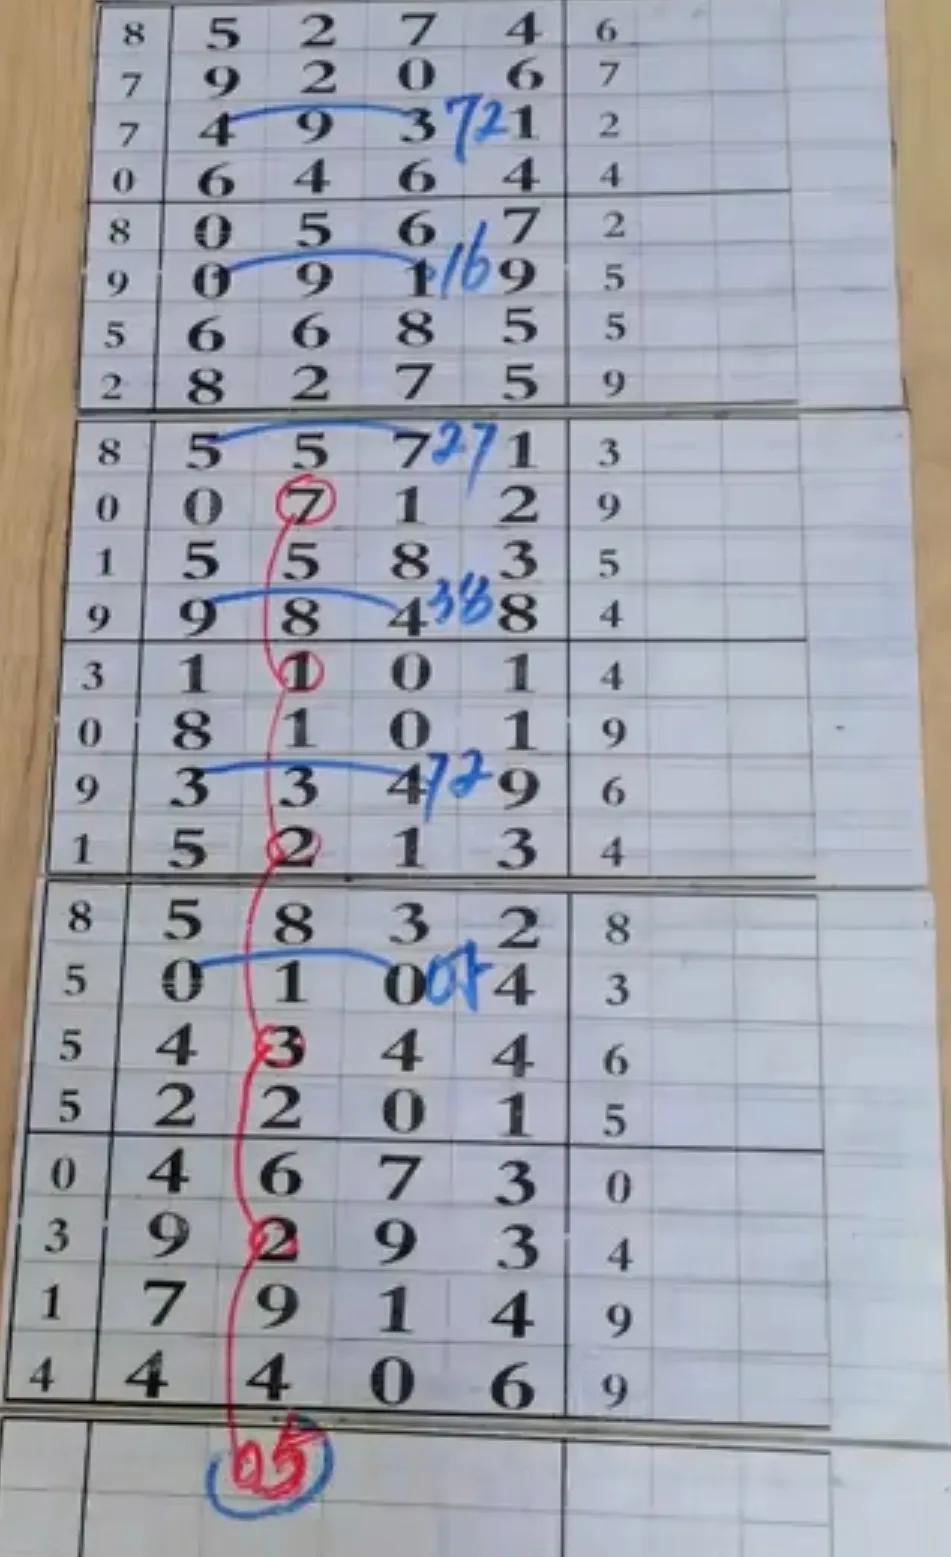 8 5 2 7 4 6
7 9 2 0 6 7
7 4 9 3 72 1 2
0 6 4 6 4 4
8 0 5 6 7 2
9 0 9 1 16 9 5
5 6 6 8 5 5
2 8 2 7 5 9
8 5 5 7 27 1 3
0 0 7 1 2 9
1 5 5 8 3 5
9 9 8 4 38 8 4
3 1 1 0 1 4
0 8 1 0 1 9
9 3 3 4 72 9 6
1 5 2 1 3 4
8 5 8 3 2 8
5 0 1 0 4 3
5 4 3 4 4 6
5 2 2 0 1 5
0 4 6 7 3 0
3 9 2 9 3 4
1 7 9 1 4 9
4 4 4 0 6 9
05